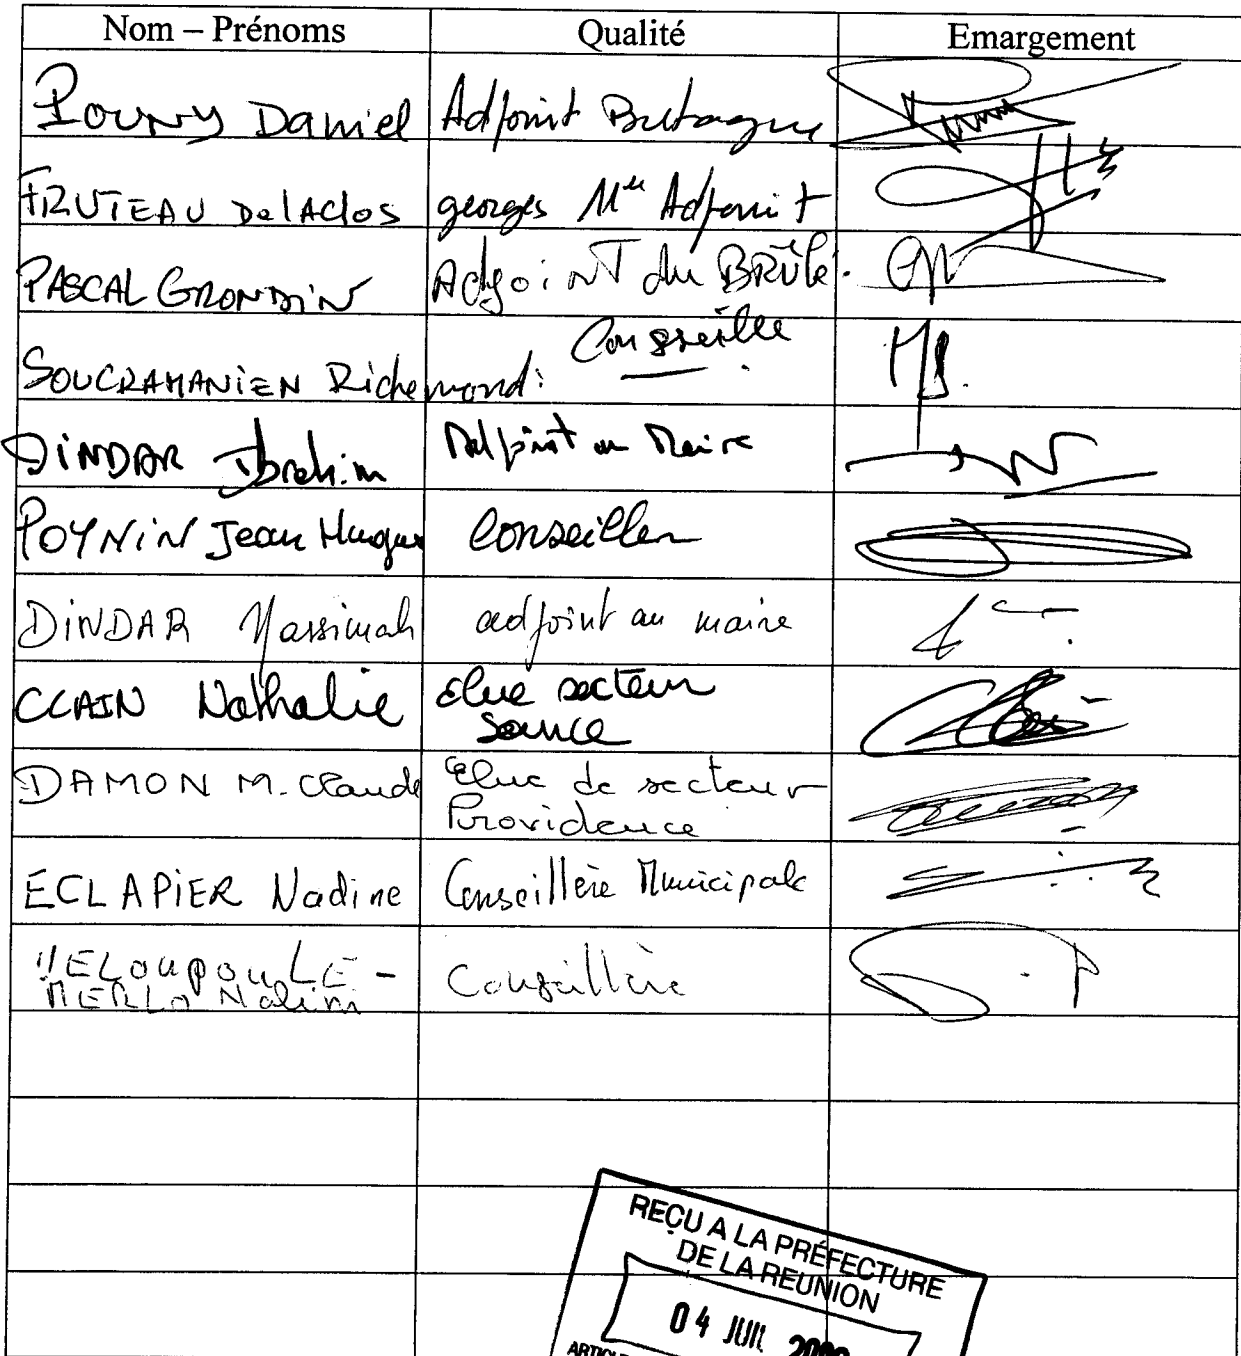 Nom – Prénoms Qualité Emargement
Daniel Adjoint Bretagne
FRUTEAU DelAclos georges Adjoint
PASCAL GRONDIN Adjoint du BRÛlé.
Conseiller
SOUCRAMANIEN Richemond:
DINDAR Ibrahim Adjoint au Maire
POYNIN Jean Hugues Conseiller
DINDAR Nassimah adjoint au maire
CLAIN Nathalie élue secteur
Source
DAMON M. Claude Elue de secteur
Providence
ECLAPIER Nadine Conseillère Municipale
Conseillère
MERLO
REÇU A LA PRÉFECTURE
DE LA REUNION
04 JUIL